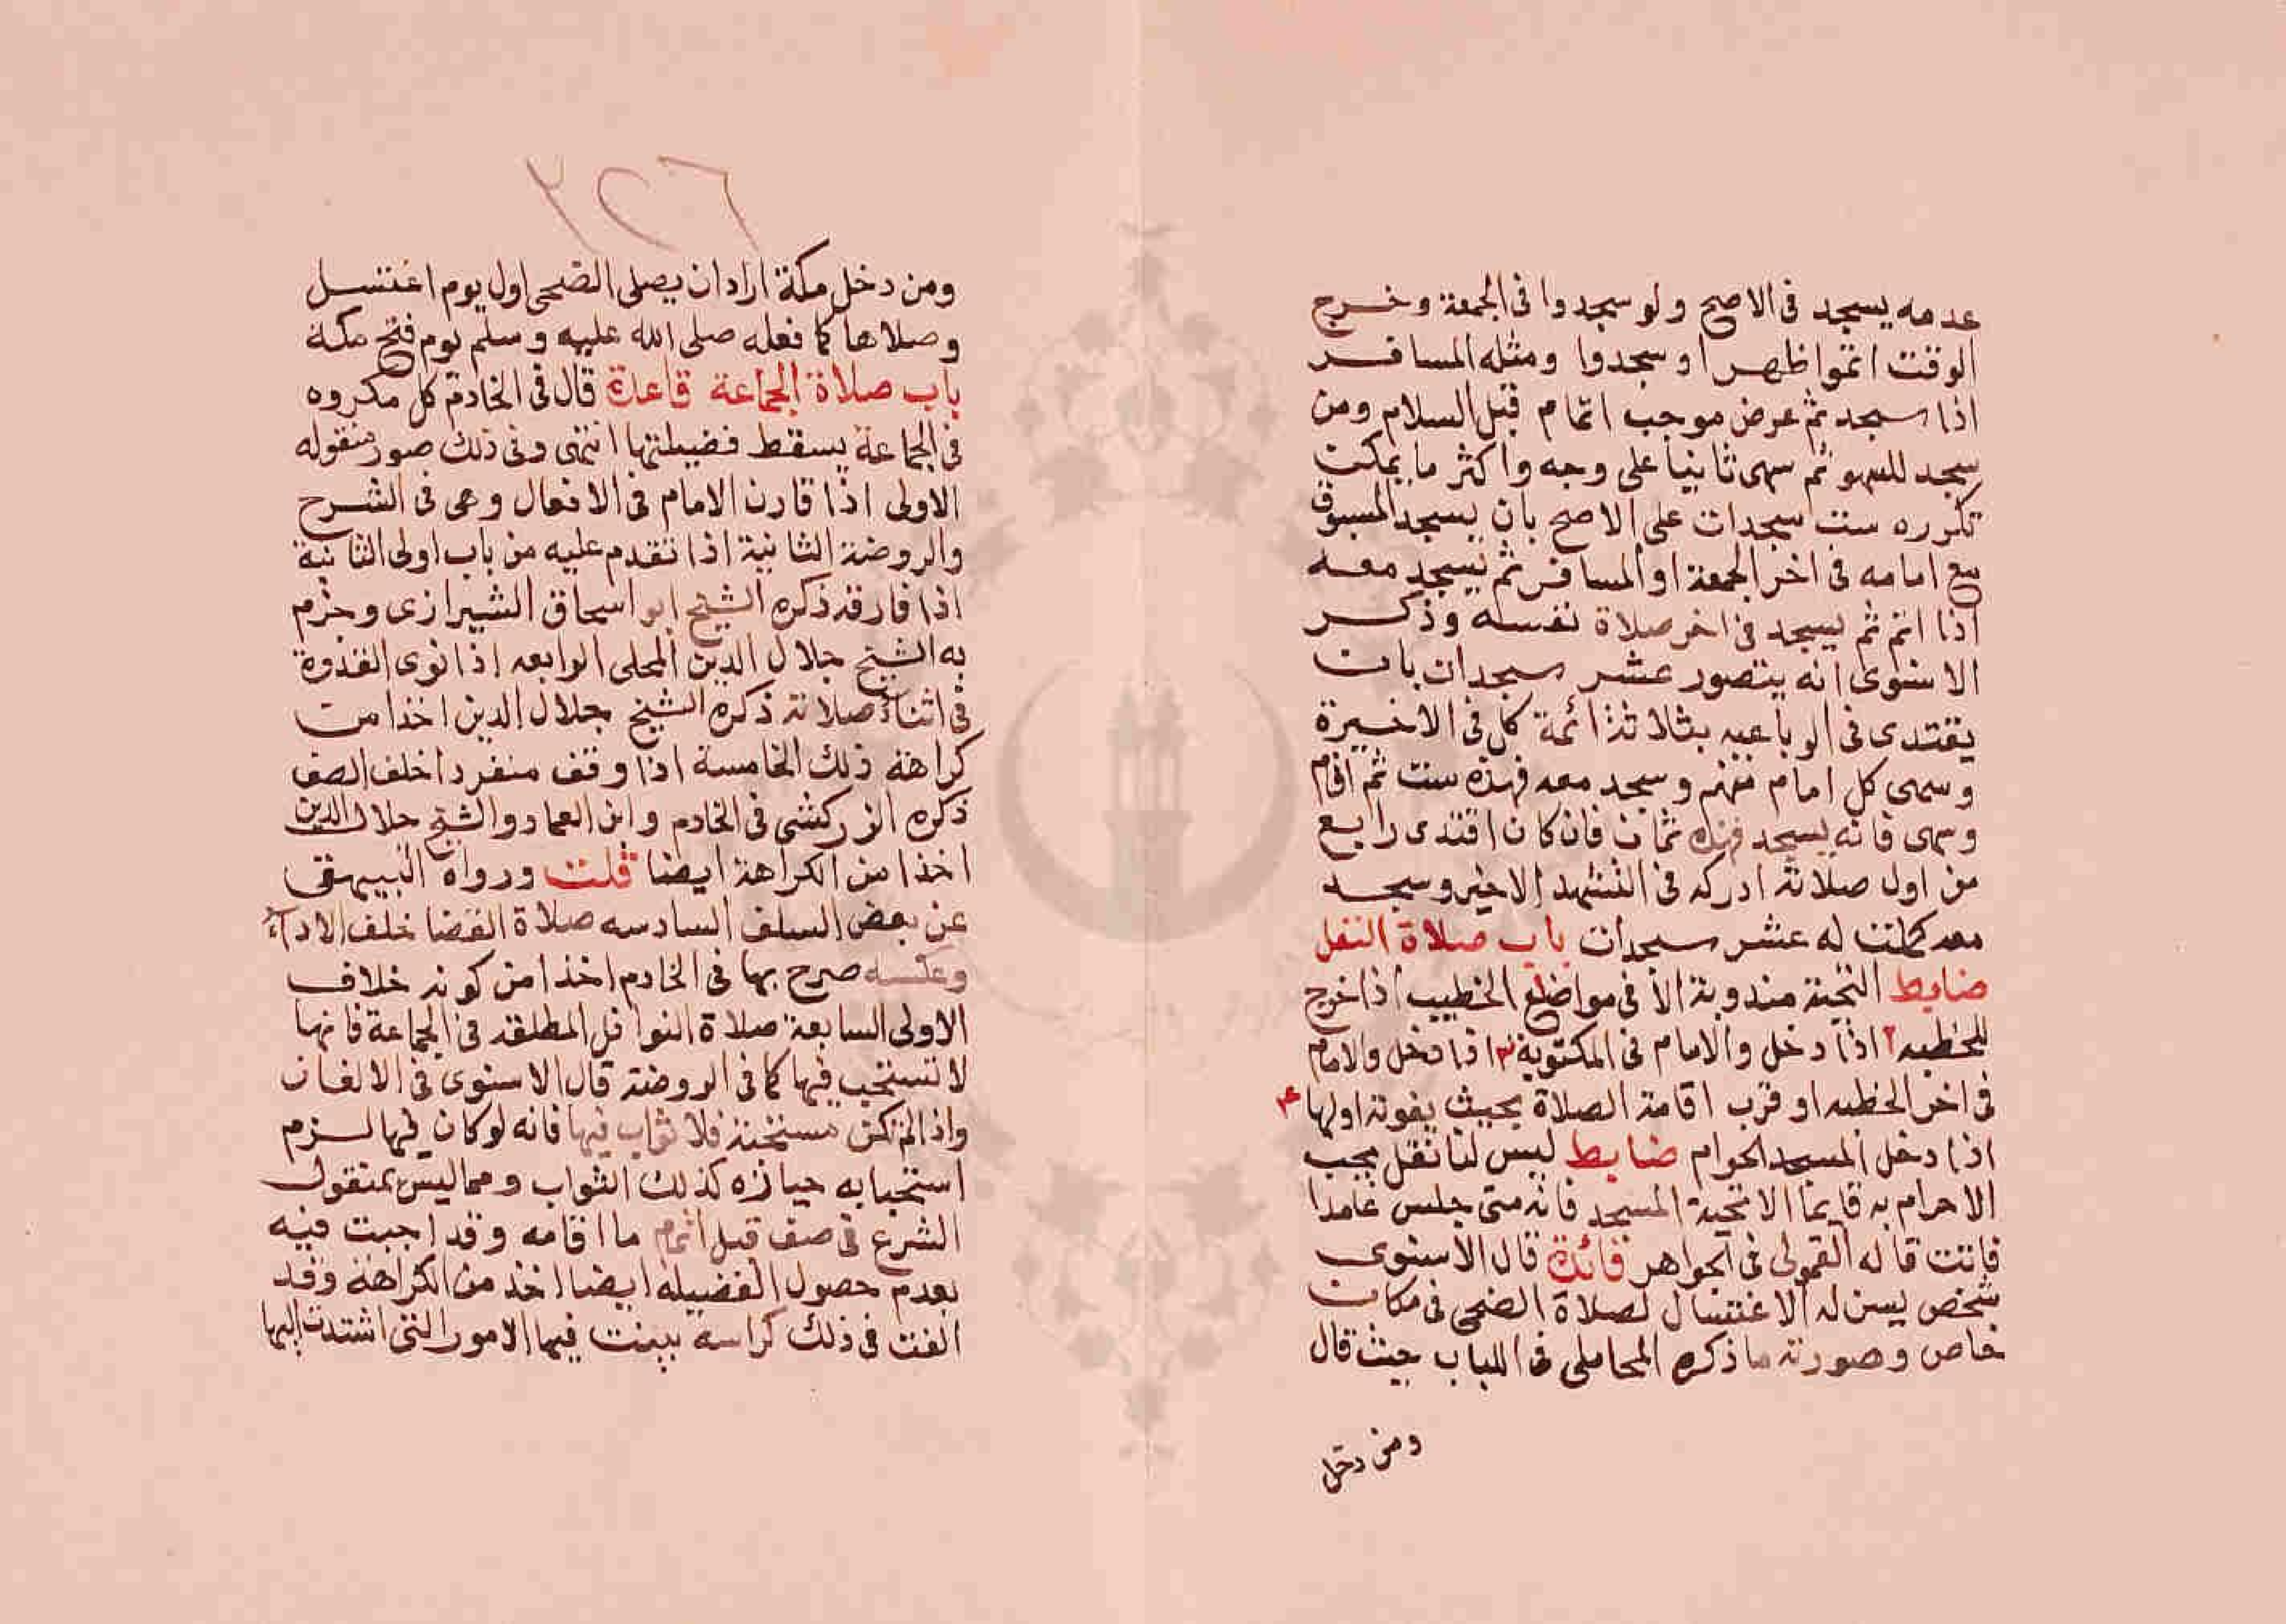 عدمه يسجد فى الاصح ولو سجدوا فى الجمعة وخرج
الوقت اتموا ظهرا وسجدوا ومثله المسافر
اذا سجد ثم عرض موجب اتمام قبل السلام ومن
سجد للسهو ثم سهى ثانيا على وجه واكثر ما يمكن
تكرره ست سجدات على الاصح بان يسجد المسبوق
مع امامه فى اخر الجمعة او المسافر ثم يسجد معه
اذا اتم ثم يسجد فى اخر صلاة نفسه وذكر
الاسنوى انه يتصور عشر سجدات بان
يقتدى فى الرباعيه بثلاثة ائمة كل فى الاخيرة
وسهى كل امام منهم وسجد معه فهذه ست ثم اقام
وسهى فانه يسجد فهذه ثمان فان كان اقتدى رابع
من اول صلاته ادركه فى التشهد الاخير وسجد
معه كملت له عشر سجدات باب صلاة النفل
ضابط التحية مندوبة الا فى مواضع الخطيب اذا خرج
للخطبه ٢ اذا دخل والامام فى المكتوبة ٣ اذا دخل والامام
فى اخر الخطبه او قرب اقامة الصلاة بحيث يفوته اولها ٤
اذا دخل المسجد الحرام ضابط ليس لنا نفل يجب
الاحرام به قايما الا تحية المسجد فانه متى جلس عامدا
فاتت قاله القمولى فى الجواهر فائدة قال الاسنوى
شخص يسن له الاغتسال لصلاة الضحى فى مكان
خاص وصورته ما ذكره المحاملى فى اللباب حيث قال
ومن دخل
٢٢٦
ومن دخل مكة اراد ان يصلى الضحى اول يوم اغتسل
وصلاها كما فعله صلى الله عليه وسلم يوم فتح مكة
باب صلاة الجماعة قاعدة قال فى الخادم كل مكروه
فى الجماعة يسقط فضيلتها انتهى وفى ذلك صور منقوله
الاولى اذا قارن الامام فى الافعال وهى فى الشرح
والروضة الثانية اذا تقدم عليه من باب اولى الثالثة
اذا فارقه ذكره الشيخ ابو اسحاق الشيرازى وجزم
به الشيخ جلال الدين المحلى الرابعه اذا نوى القدوة
فى اثناء صلاته ذكره الشيخ جلال الدين اخذا من
كراهة ذلك الخامسة اذا وقف منفردا خلف الصف
ذكره الزركشى فى الخادم وابن العماد والشيخ جلال الدين
اخذا من الكراهة ايضا قلت ورواه البيهقى
عن بعض السلف السادسه صلاة القضا خلف الاداء
وعكسه صرح بها فى الخادم اخذا من كونه خلاف
الاولى السابعة صلاة النوافل المطلقه فى الجماعة فانها
لا تستحب فيها كما فى الروضة قال الاسنوى فى الالغاز
واذا لم تكن مستحبة فلا ثواب فيها فانه لو كان فيها لزم
استحبابه حيازه كذلك الثواب ومما ليس بمنقول
الشرع فى صف قبل اتمام ما اقامه وقد اجبت فيه
بعدم حصول الفضيله ايضا اخذ من الكراهة وقد
الفت فى ذلك كراسة بينت فيها الامور التى استندت اليها